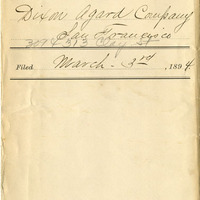 Dixon Agard Company
San Francisco
309 & 313 Clay St
Filed March - 2rd, 1894